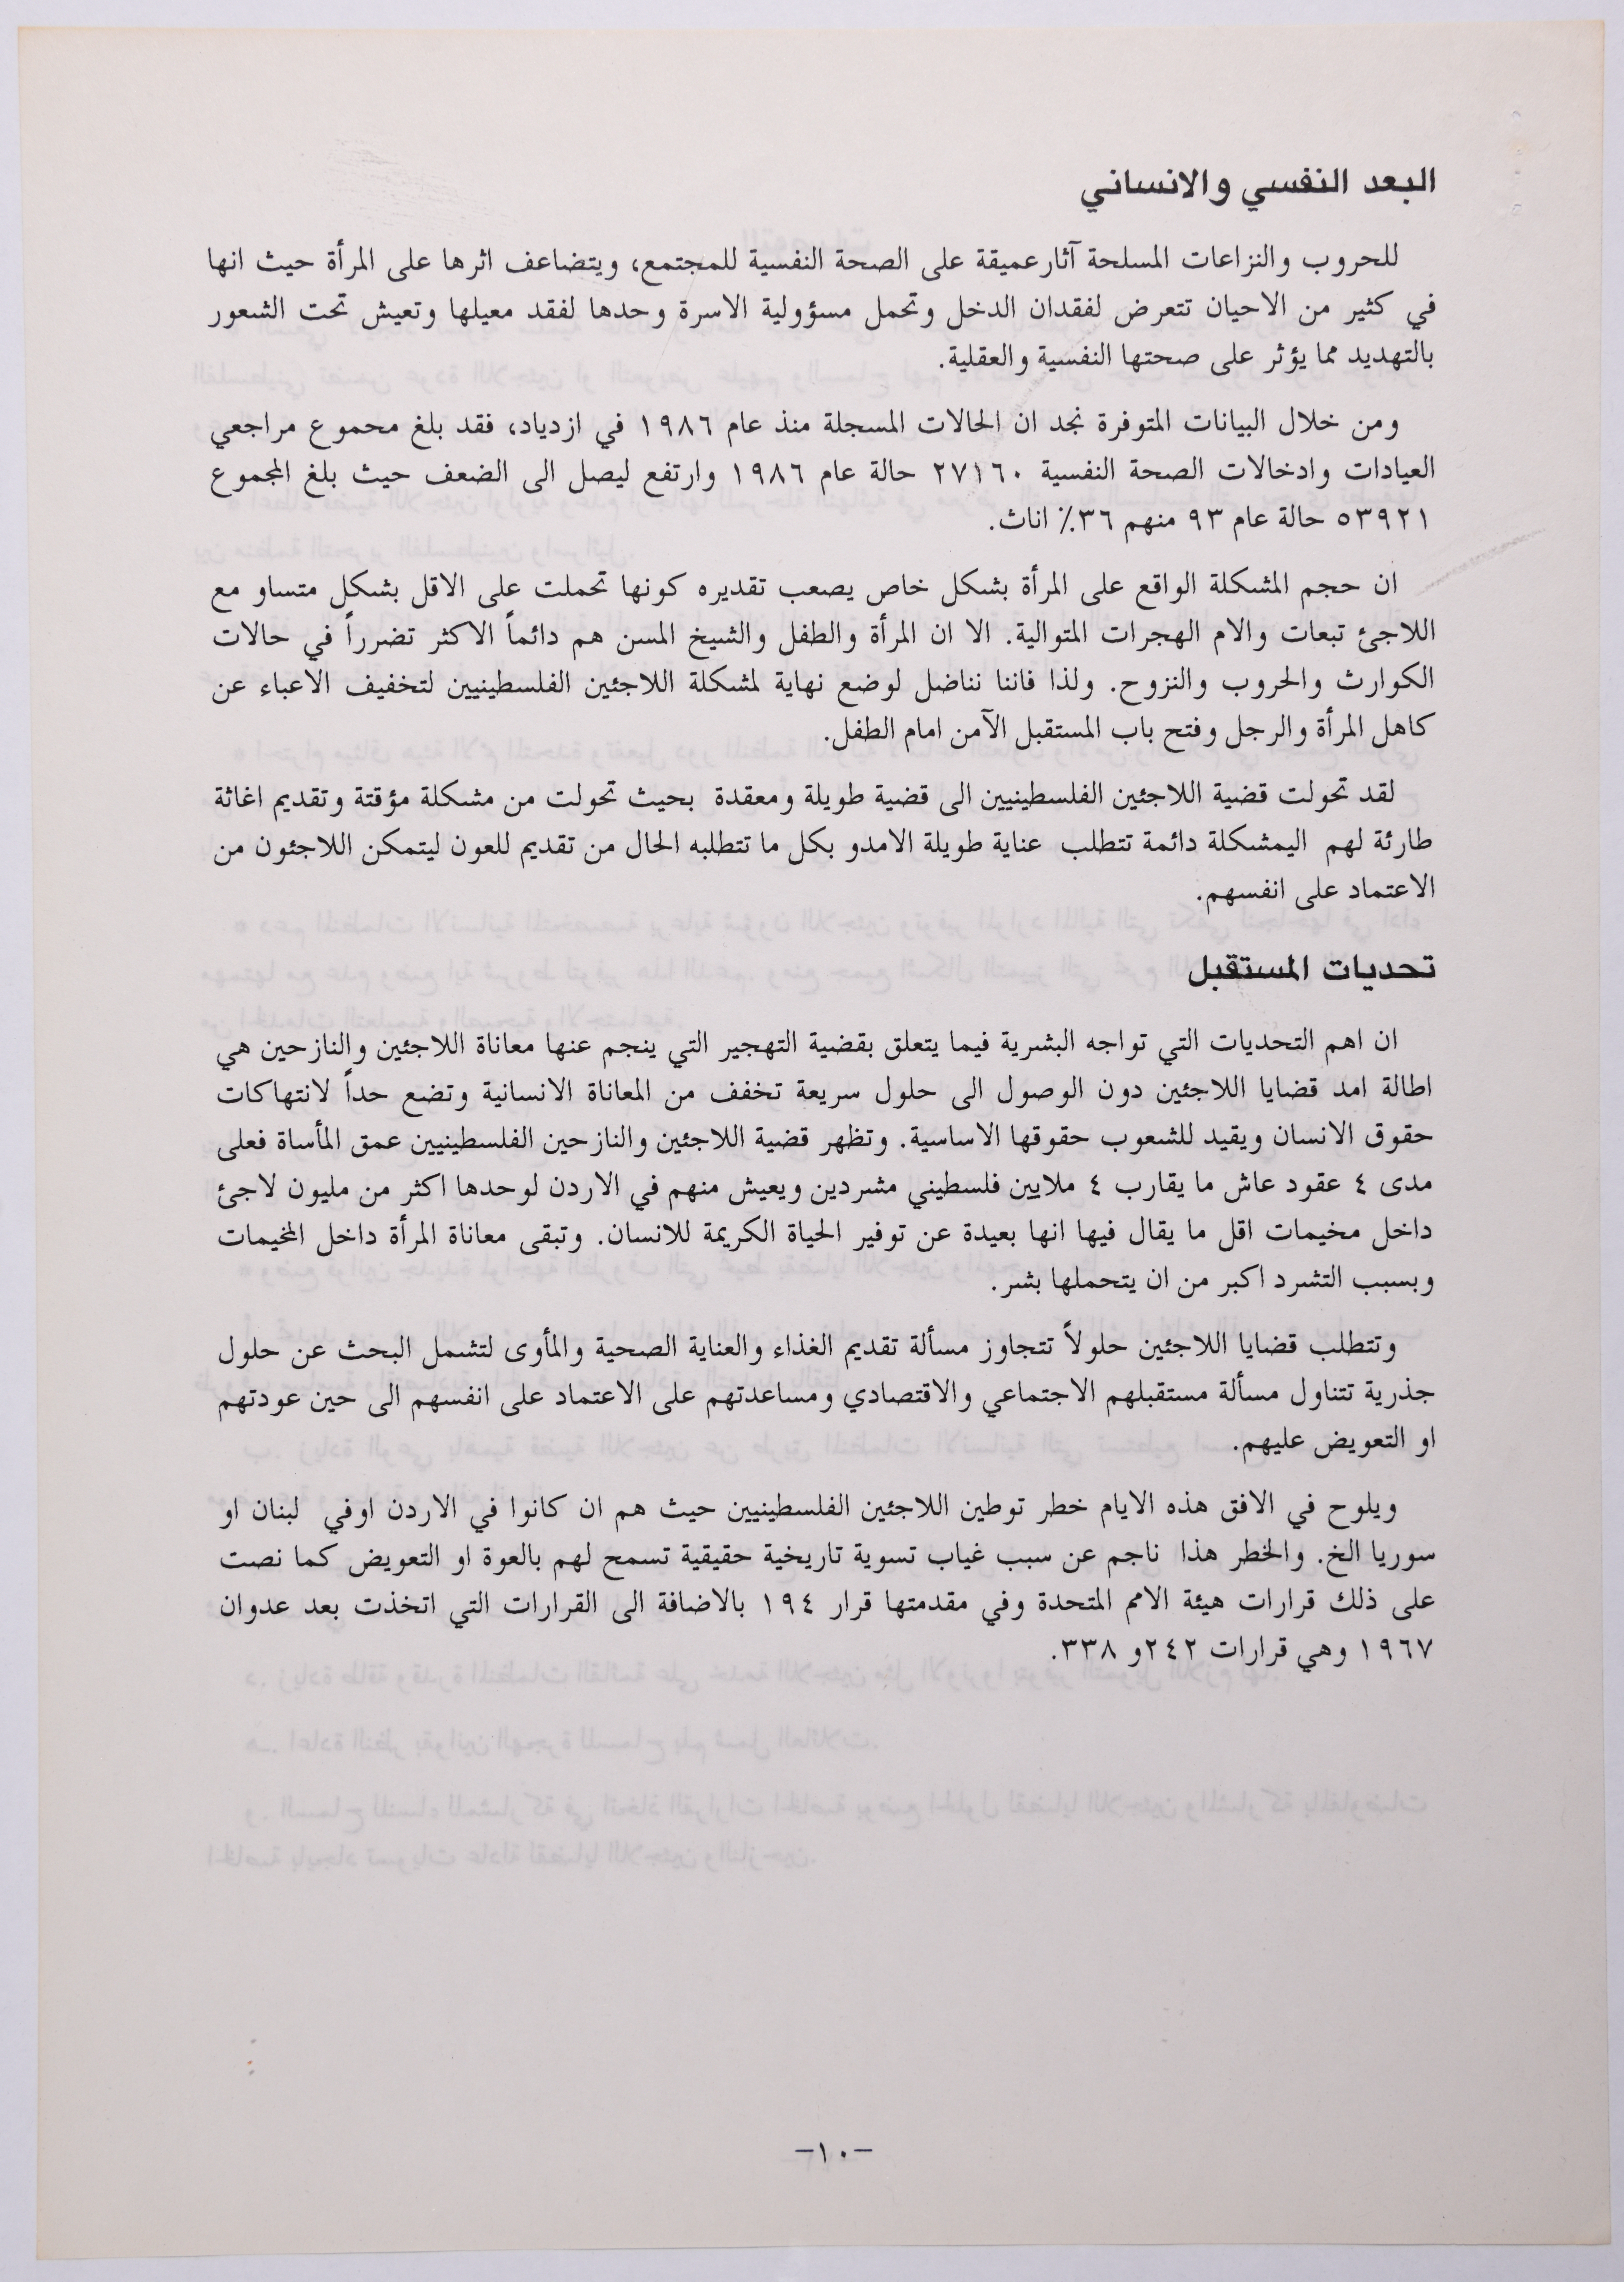 البعد النفسي والانساني
للحروب والنزاعات المسلحة آثارعميقة على الصحة النفسية للمجتمع، ويتضاعف اثرها على المرأة حيث انها
في كثير من الاحيان تتعرض لفقدان الدخل وتحمل مسؤولية الاسرة وحدها لفقد معيلها وتعيش تحت الشعور
بالتهديد مما يؤثر على صحتها النفسية والعقلية.
ومن خلال البيانات المتوفرة نجد ان الحالات المسجلة منذ عام ١٩٨٦ في ازدياد، فقد بلغ مجموع مراجعي
العيادات وادخالات الصحة النفسية ٢٧١٦٠ حالة عام ١٩٨٦ وارتفع ليصل الى الضعف حيث بلغ المجموع
٥٣٩٢١ حالة عام ٩٣ منهم ٣٦٪ اناث.
ان حجم المشكلة الواقع على المرأة بشكل خاص يصعب تقديره كونها تحملت على الاقل بشكل متساو مع
اللاجئ تبعات والام الهجرات المتوالية. الا ان المرأة والطفل والشيخ المسن هم دائماً الاكثر تضرراً في حالات
الكوارث والحروب والنزوح. ولذا فاننا نناضل لوضع نهاية لمشكلة اللاجئين الفلسطينيين لتخفيف الاعباء عن
كاهل المرأة والرجل وفتح باب المستقبل الآمن امام الطفل.
لقد تحولت قضية اللاجئين الفلسطينيين الى قضية طويلة ومعقدة بحيث تحولت من مشكلة مؤقتة وتقديم اغاثة
طارئة لهم اليمشكلة دائمة تتطلب عناية طويلة الامدو بكل ما تتطلبه الحال من تقديم للعون ليتمكن اللاجئون من
الاعتماد على انفسهم.
تحديات المستقبل
ان اهم التحديات التي تواجه البشرية فيما يتعلق بقضية التهجير التي ينجم عنها معاناة اللاجئين والنازحين هي
اطالة امد قضايا اللاجئين دون الوصول الى حلول سريعة تخفف من المعاناة الانسانية وتضع حداً لانتهاكات
حقوق الانسان ويقيد للشعوب حقوقها الاساسية. وتظهر قضية اللاجئين والنازحين الفلسطينيين عمق المأساة فعلى
مدى ٤ عقود عاش ما يقارب ٤ ملايين فلسطيني مشردين ويعيش منهم في الاردن لوحدها اكثر من مليون لاجئ
داخل مخيمات اقل ما يقال فيها انها بعيدة عن توفير الحياة الكريمة للانسان. وتبقى معاناة المرأة داخل المخيمات
وبسبب التشرد اكبر من ان يتحملها بشر.
وتتطلب قضايا اللاجئين حلولاً تتجاوز مسألة تقديم الغذاء والعناية الصحية والمأوى لتشمل البحث عن حلول
جذرية تتناول مسألة مستقبلهم الاجتماعي والاقتصادي ومساعدتهم على الاعتماد على انفسهم الى حين عودتهم
او التعويض عليهم.
ويلوح في الافق هذه الايام خطر توطين اللاجئين الفلسطينيين حيث هم ان كانوا في الاردن اوفي لبنان او
سوريا الخ. والخطر هذا ناجم عن سبب غياب تسوية تاريخية حقيقية تسمح لهم بالعوة او التعويض كما نصت
على ذلك قرارات هيئة الامم المتحدة وفي مقدمتها قرار ١٩٤ بالاضافة الى القرارات التي اتخذت بعد عدوان
١٩٦٧ وهي قرارات ٢٤٢و ٣٣٨.
-١٠-